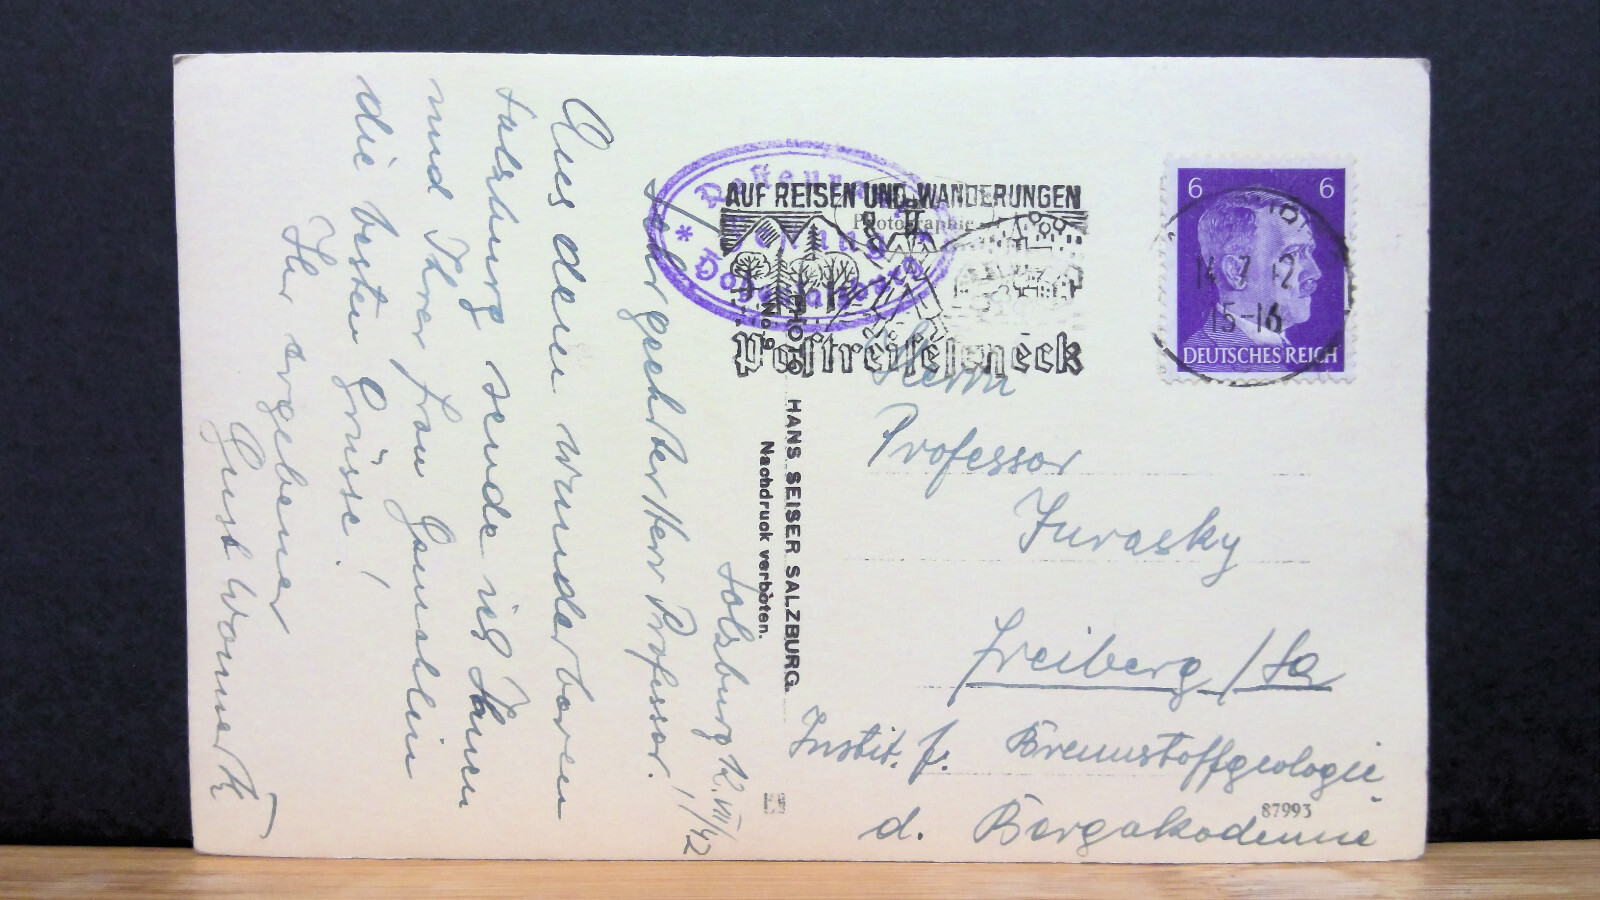 Salzburg 12.VII/42
Sehr geehrter Herr Professor!
Aus dem wunderbaren
Salzburg sende ich Ihnen
und Ihrer Frau Gemahlin
die besten Grüsse!
Ihr ergebener
AUF REISEN UND WANDERUNGEN
Postreisescheck
Photographie
PHOTO
HANS SEISER SALZBURG.
Nachdruck verboten.
6 6
DEUTSCHES REICH
15-16
Herrn
Professor
Jurasky
Freiberg/Sa
Instit. f. Brennstoffgeologie
d. Bergakademie
87993